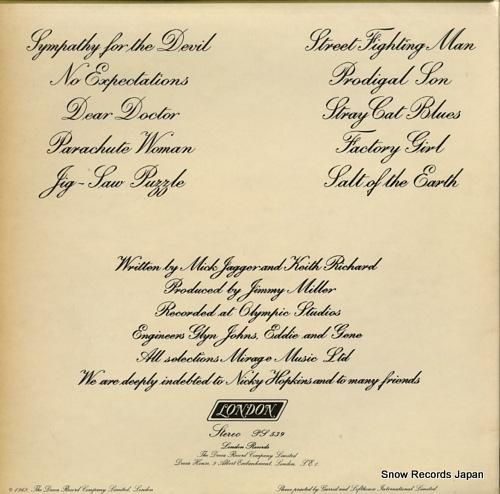 Sympathy for the Devil
No Expectations
Dear Doctor
Parachute Woman
Jig-Saw Puzzle
Street Fighting Man
Prodigal Son
Stray Cat Blues
Factory Girl
Salt of the Earth
Written by Mick Jagger and Keith Richard
Produced by Jimmy Miller
Recorded at Olympic Studios
Engineers Glyn Johns, Eddie and Gene
All selections Mirage Music Ltd
We are deeply indebted to Nicky Hopkins and to many friends
LONDON
Stereo PS 539
London Records
The Decca Record Company Limited
Decca House, 9 Albert Embankment, London, S.E.1.
℗ 1968, The Decca Record Company Limited, London
Sleeve printed by Garrod and Lofthouse International Limited
Snow Records Japan